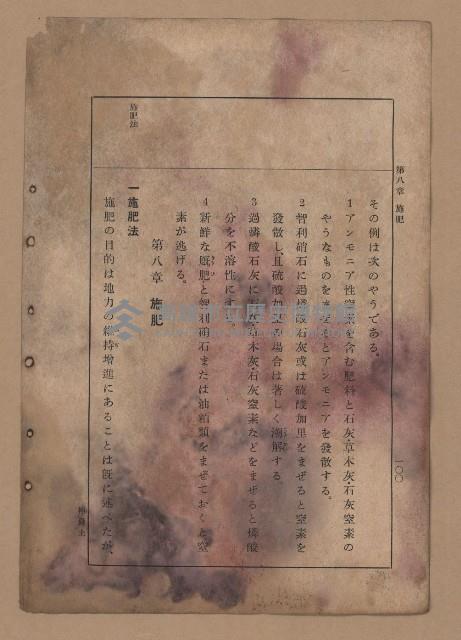 第八章 施肥
一〇〇
施肥法
その例は次のやうである。
1 アンモニア性窒素を含む肥料と石灰・草木灰・石灰窒素の
やうなものをまぜるとアンモニアを發散する。
2 智利硝石に過燐酸石灰或は硫酸加里をまぜると窒素を
發散し、且硫酸加里の場合は著しく潮解する。
3 過燐酸石灰に草木灰・石灰窒素などをまぜると燐酸
分を不溶性にする。
4 新鮮な厩肥と智利硝石または油粕類をまぜておくと窒
素が逃げる。
第八章 施肥
一 施肥法
施肥の目的は地力の維持增進にあることは既に述べたが、
高雄市立歷史博物館